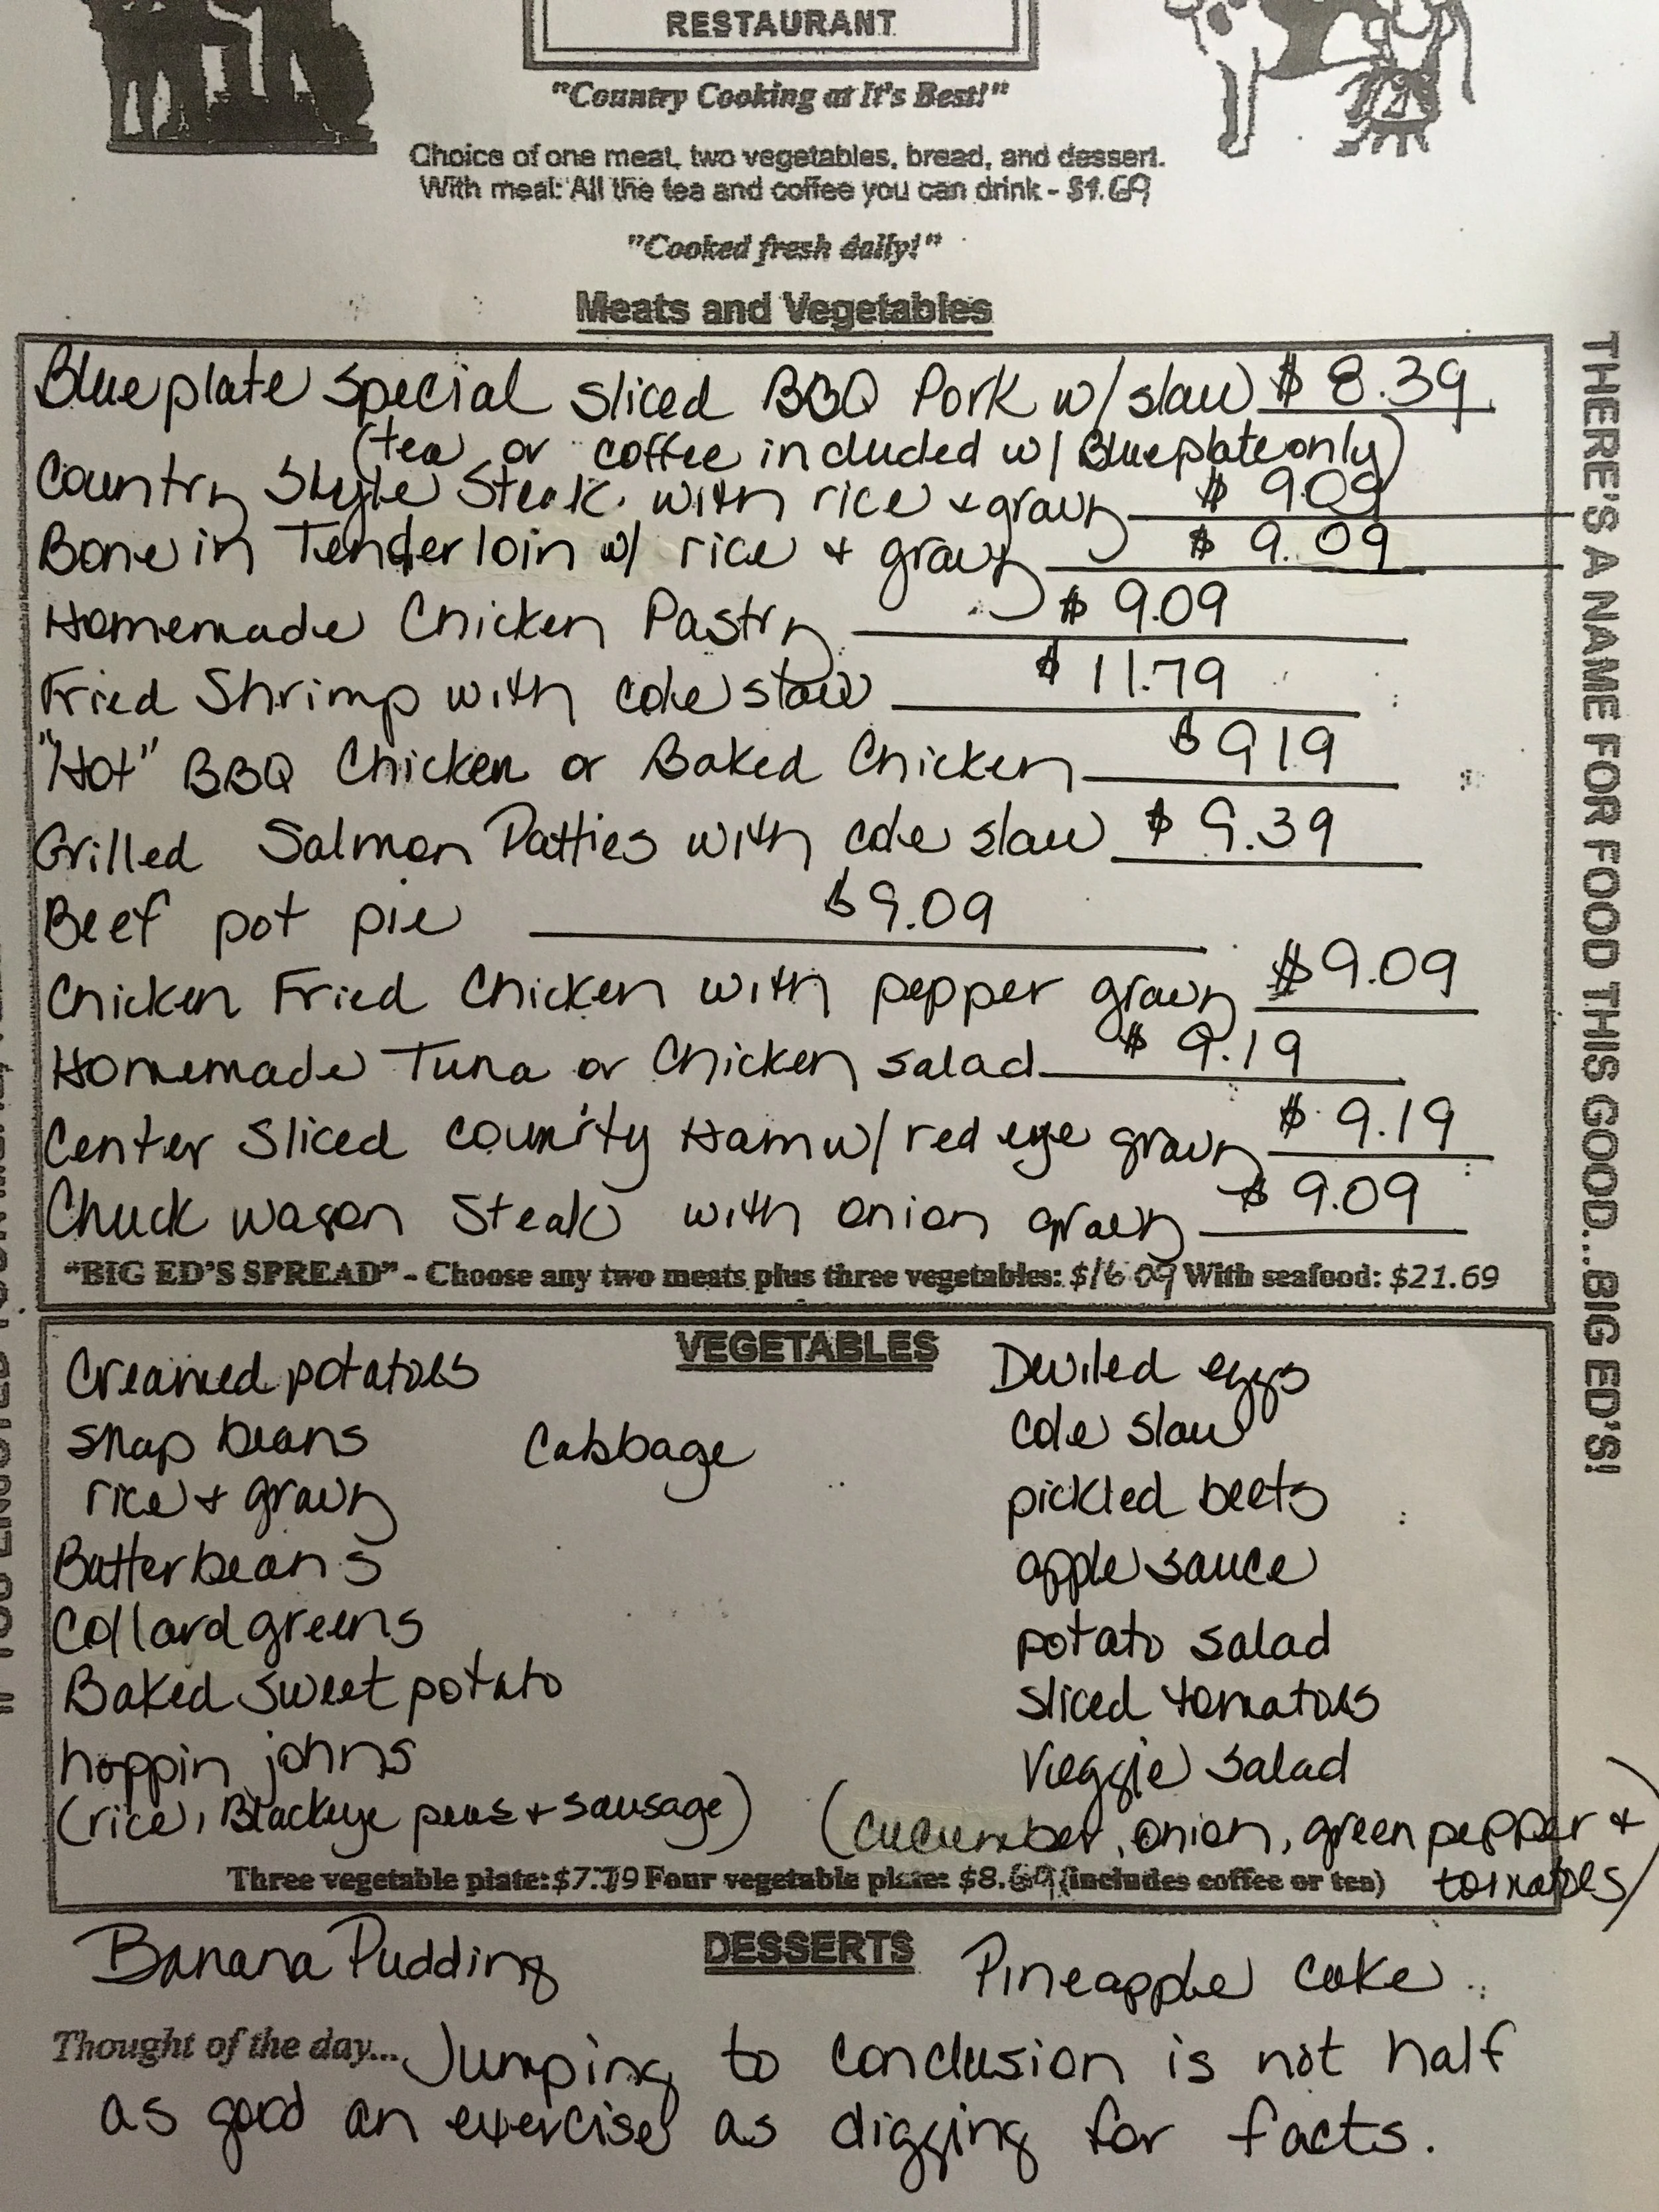 RESTAURANT
"Country Cooking at It's Best!"
Choice of one meat, two vegetables, bread, and dessert.
With meal: All the tea and coffee you can drink - $1.69
"Cooked fresh daily!"
Meats and Vegetables
Blueplate special sliced BBQ Pork w/slaw $ 8.39
(tea or coffee included w/ Blueplate only)
Country Style Steak with rice + gravy $ 9.09
Bone in Tenderloin w/ rice + gravy $ 9.09
Homemade Chicken Pastry $ 9.09
Fried Shrimp with cole slaw $ 11.79
"Hot" BBQ Chicken or Baked Chicken $ 919
Grilled Salmon Patties with cole slaw $ 9.39
Beef pot pie $9.09
Chicken Fried Chicken with pepper gravy $9.09
Homemade Tuna or Chicken salad $ 9.19
Center Sliced county Ham w/ red eye gravy $ 9.19
Chuck wagon Steak with onion gravy $ 9.09
"BIG ED'S SPREAD" - Choose any two meats plus three vegetables: $16 09 With seafood: $21.69
THERE'S A NAME FOR FOOD THIS GOOD...BIG ED'S!
VEGETABLES
Creamed potatoes
snap beans
rice + gravy
Butterbeans
Collard greens
Baked sweet potato
hoppin johns
(rice, Blackeye peas + sausage)
Cabbage
Deviled eggs
cole slaw
pickled beets
apple sauce
potato salad
sliced tomatoes
Veggie salad
(cucumber, onion, green pepper +
tomatoes)
Three vegetable plate: $7.79 Four vegetable plate: $8.69 (includes coffee or tea)
DESSERTS
Banana Pudding
Pineapple cake
Thought of the day... Jumping to conclusion is not half
as good an exercise as digging for facts.